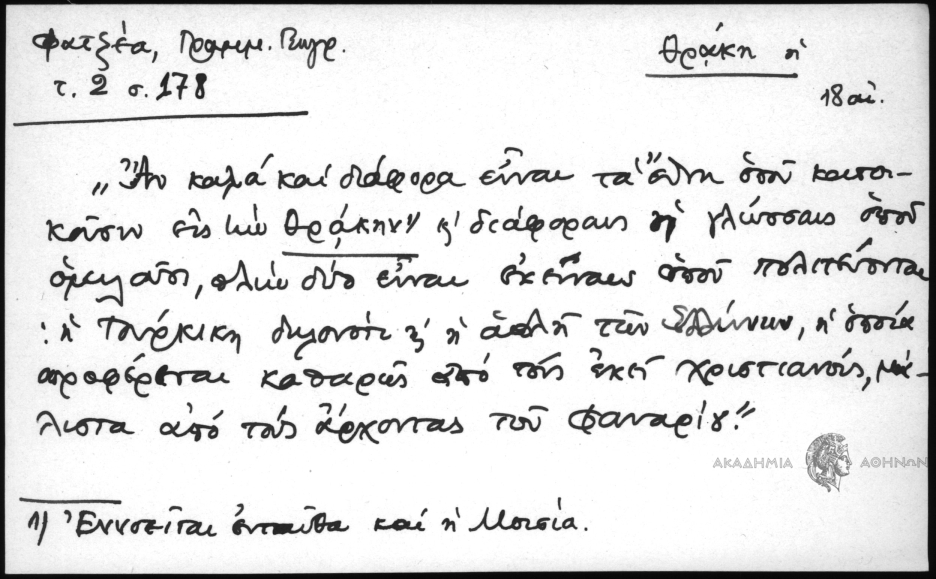 Φατζέα, Γραμμ. Γεωγρ.
τ. 2 σ. 178
Θράκη ἡ
18 αἰ.
„Ἂν καλά καί διάφορα εἶναι τά ἔθνη ὁποῦ κατοι-
κοῦσιν εἰς τήν Θράκην¹⁾ κ' διάφοραις ᾑ γλώσσαις ὁποῦ
ὁμιλοῦσι, πλήν δύο εἶναι ἐκεῖναις ὁποῦ πολιτεύονται
: ἡ Τούρκικη δηλονότι κ' ἡ ἁπλῆ τῶν Ἑλλήνων, ἡ ὁποία
προφέρεται καθαρῶς ἀπό τούς ἐκεῖ χριστιανούς, μά-
λιστα ἀπό τούς ἄρχοντας τοῦ Φαναρίου."
ΑΚΑΔΗΜΙΑ ΑΘΗΝΩΝ
1) Ἐννοεῖται ἐνταῦθα καί ἡ Μοισία.